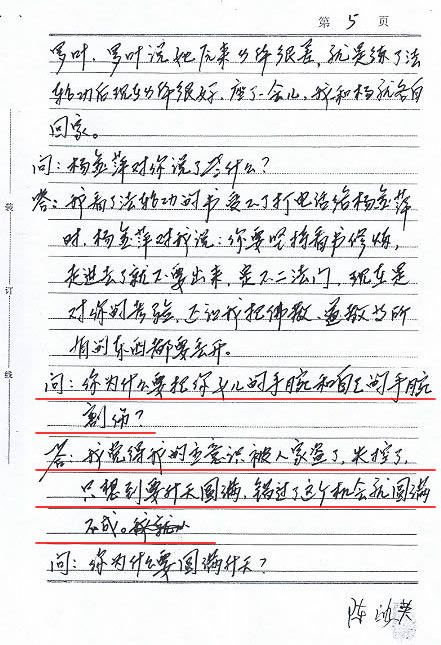 第 5 页
罗叶，罗叶说她原来身体很差，就是练了法
轮功后现在身体很好，座了一会儿，我和杨就各自
回家。
问：杨金萍对你说了些什么？
答：我看了法轮功的书受不了打电话给杨金萍
时，杨金萍对我说：你要坚持看书修炼，
走进去了就不要出来，是不二法门，现在是
对你的考验，还让我把佛教、道教的所
有的东西都要丢开。
问：你为什么要把你女儿的手腕和自己的手腕
割伤？
答：我觉得我的主意识被人家盗了，失控了，
只想到要升天圆满，错过了这个机会就圆满
不成。
问：你为什么要圆满升天？
装
订
线
陈